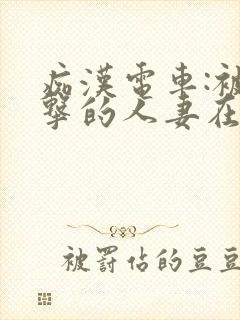 痴漢電車:被
擊的人妻在
被罰佔的豆豆